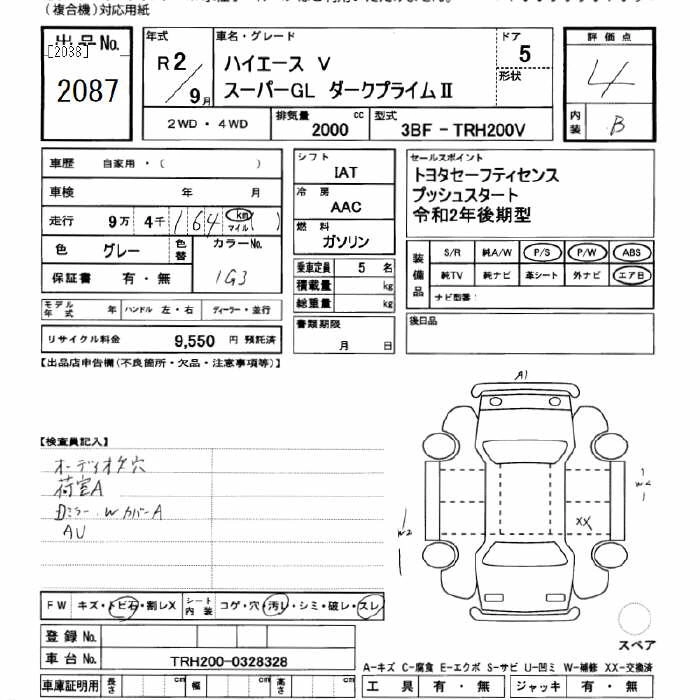 (複合機)対応用紙
出品No. [2038]
2087
年式 R2/9月
車名・グレード ハイエース V
スーパーGL ダークプライムⅡ
ドア 5
形状
評価点 4
内装 B
2WD・4WD
排気量 2000 cc
型式 3BF-TRH200V
車歴 自家用・( )
車検 年 月
走行 9万 4千 164 km マイル ( )
色 グレー 色替 カラーNo. 1G3
保証書 有・無
モデル年式 年 ハンドル 左・右 ディーラー・並行
リサイクル料金 9,550 円 預託済
シフト IAT
冷房 AAC
燃料 ガソリン
乗車定員 5 名
積載量 kg
総重量 kg
書類期限 月 日
セールスポイント
トヨタセーフティセンス
プッシュスタート
令和2年後期型
装備品 S/R 純A/W P/S P/W ABS
純TV 純ナビ 革シート 外ナビ エアB
ナビ型番:
後日品
【出品店申告欄(不良箇所・欠品・注意事項等)】
【検査員記入】
オーディオ穴
荷室A
ミラー、Wカバー A
AU
A1
W2
W2
XX
FW キズ・トビ石・割レX シート内装 コゲ・穴・汚レ・シミ・破レ・スレ
登録No.
車台No. TRH200-0328328
車庫証明用 長さ cm 幅 cm 高さ cm
スペア
A-キズ C-腐食 E-エクボ S-サビ U-凹ミ W-補修 XX-交換済
工具 有・無 ジャッキ 有・無